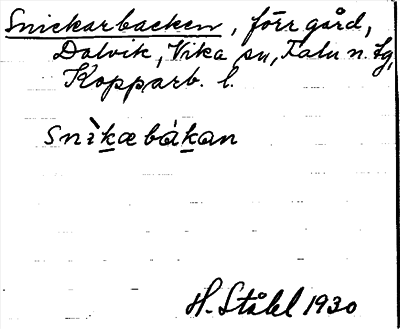 Snickarbacken, förr gård,
Dalvik, Vika sn, Falu n. tg,
Kopparb. l.
snìkæbákan
H. Ståhl 1930